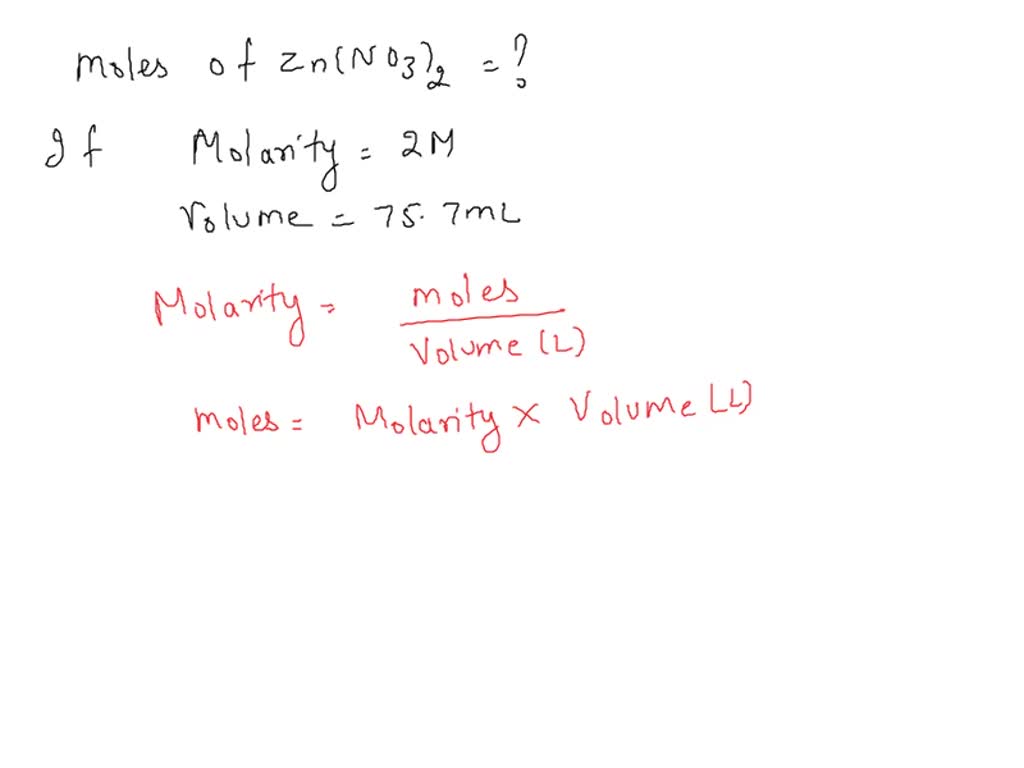 moles of Zn(NO3)2 = ?
If Molarity = 2M
Volume = 75.7mL
Molarity = moles / Volume (L)
moles = Molarity × Volume (L)